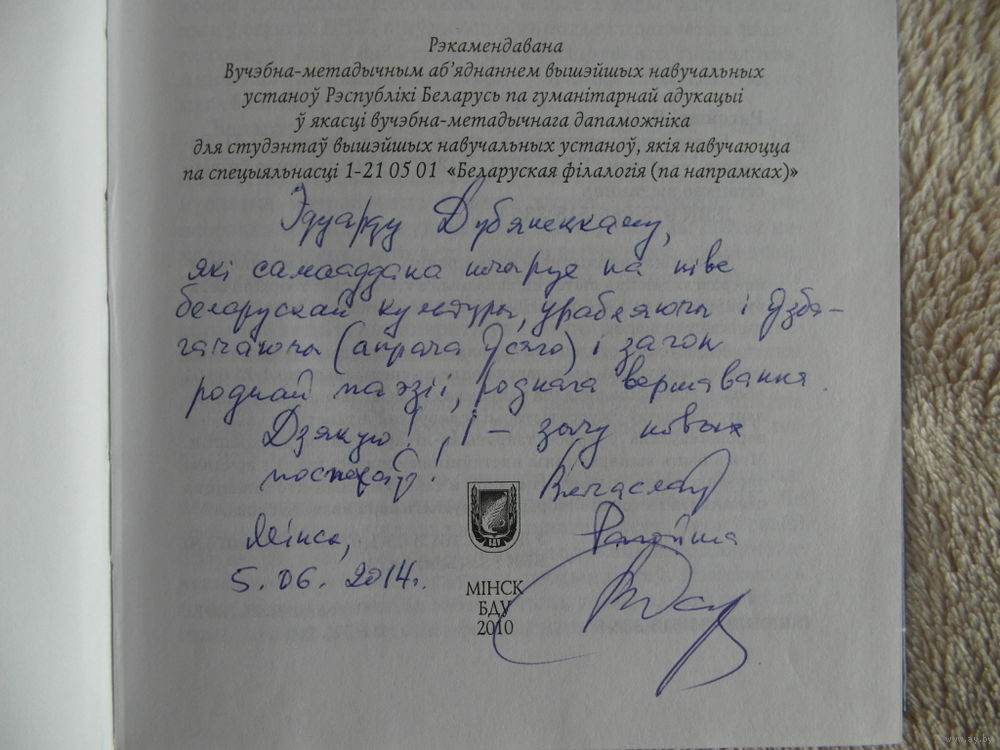 Рэкамендавана
Вучэбна-метадычным аб’яднаннем вышэйшых навучальных
устаноў Рэспублікі Беларусь па гуманітарнай адукацыі
ў якасці вучэбна-метадычнага дапаможніка
для студэнтаў вышэйшых навучальных устаноў, якія навучаюцца
па спецыяльнасці 1-21 05 01 «Беларуская філалогія (па напрамках)»
Эдуарду Дубянецкаму,
які самааддана шчыруе на ніве
беларускай культуры, урабляючы і ўзба-
гачаючы (апрача ўсяго) і загон
роднай паэзіі, роднага вершавання.
Дзякую! І – зычу новых
поспехаў!
Вячаслаў
Рагойша
Мінск,
5.06.2014г.
БДУ
МІНСК
БДУ
2010
www.ay.by